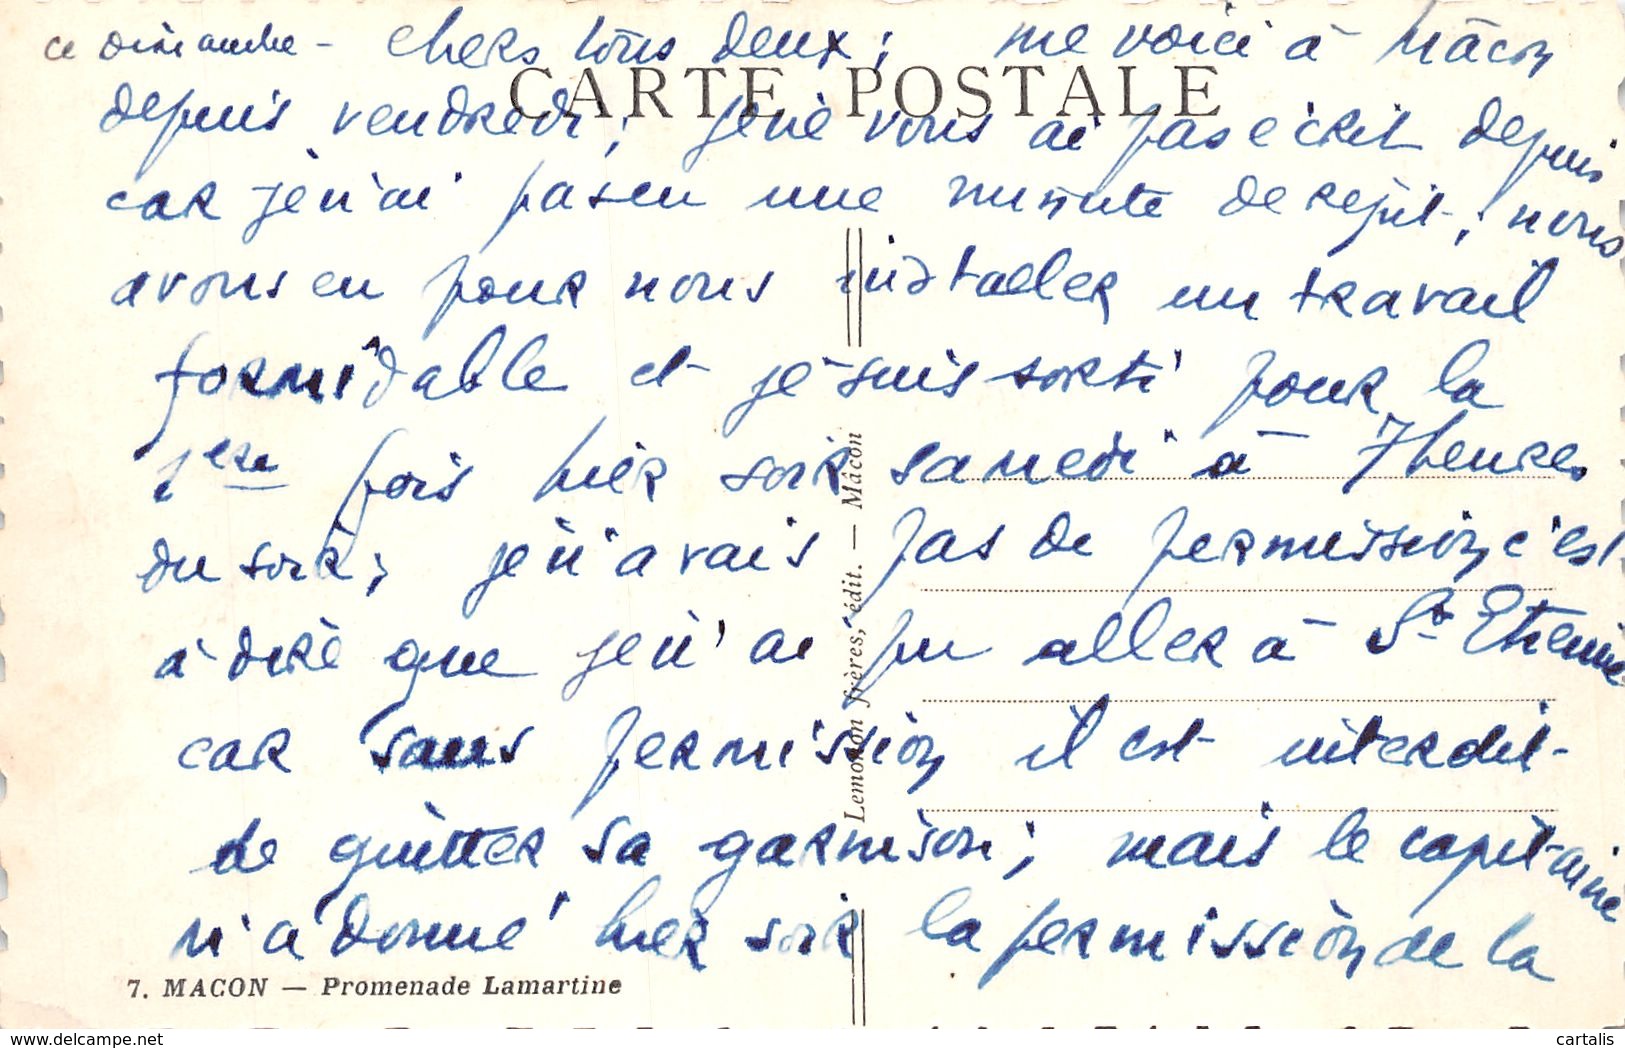 ce dimanche - chers tous deux ; me voici à Mâcon
CARTE POSTALE
depuis vendredi ; je ne vous ai pas écrit depuis
car je n'ai pas eu une minute de répit ; nous
avons eu pour nous installer un travail
formidable et je suis sorti pour la
1ère fois hier soir samedi à 7 heures
du soir ; je n'avais pas de permission c'est
à dire que je n'ai pu aller à St Etienne
car sans permission il est interdit
de quitter sa garnison ; mais le capitaine
m'a donné hier soir la permission de la
Lemonon frères, édit. — Mâcon
7. MACON — Promenade Lamartine
www.delcampe.net
cartalis